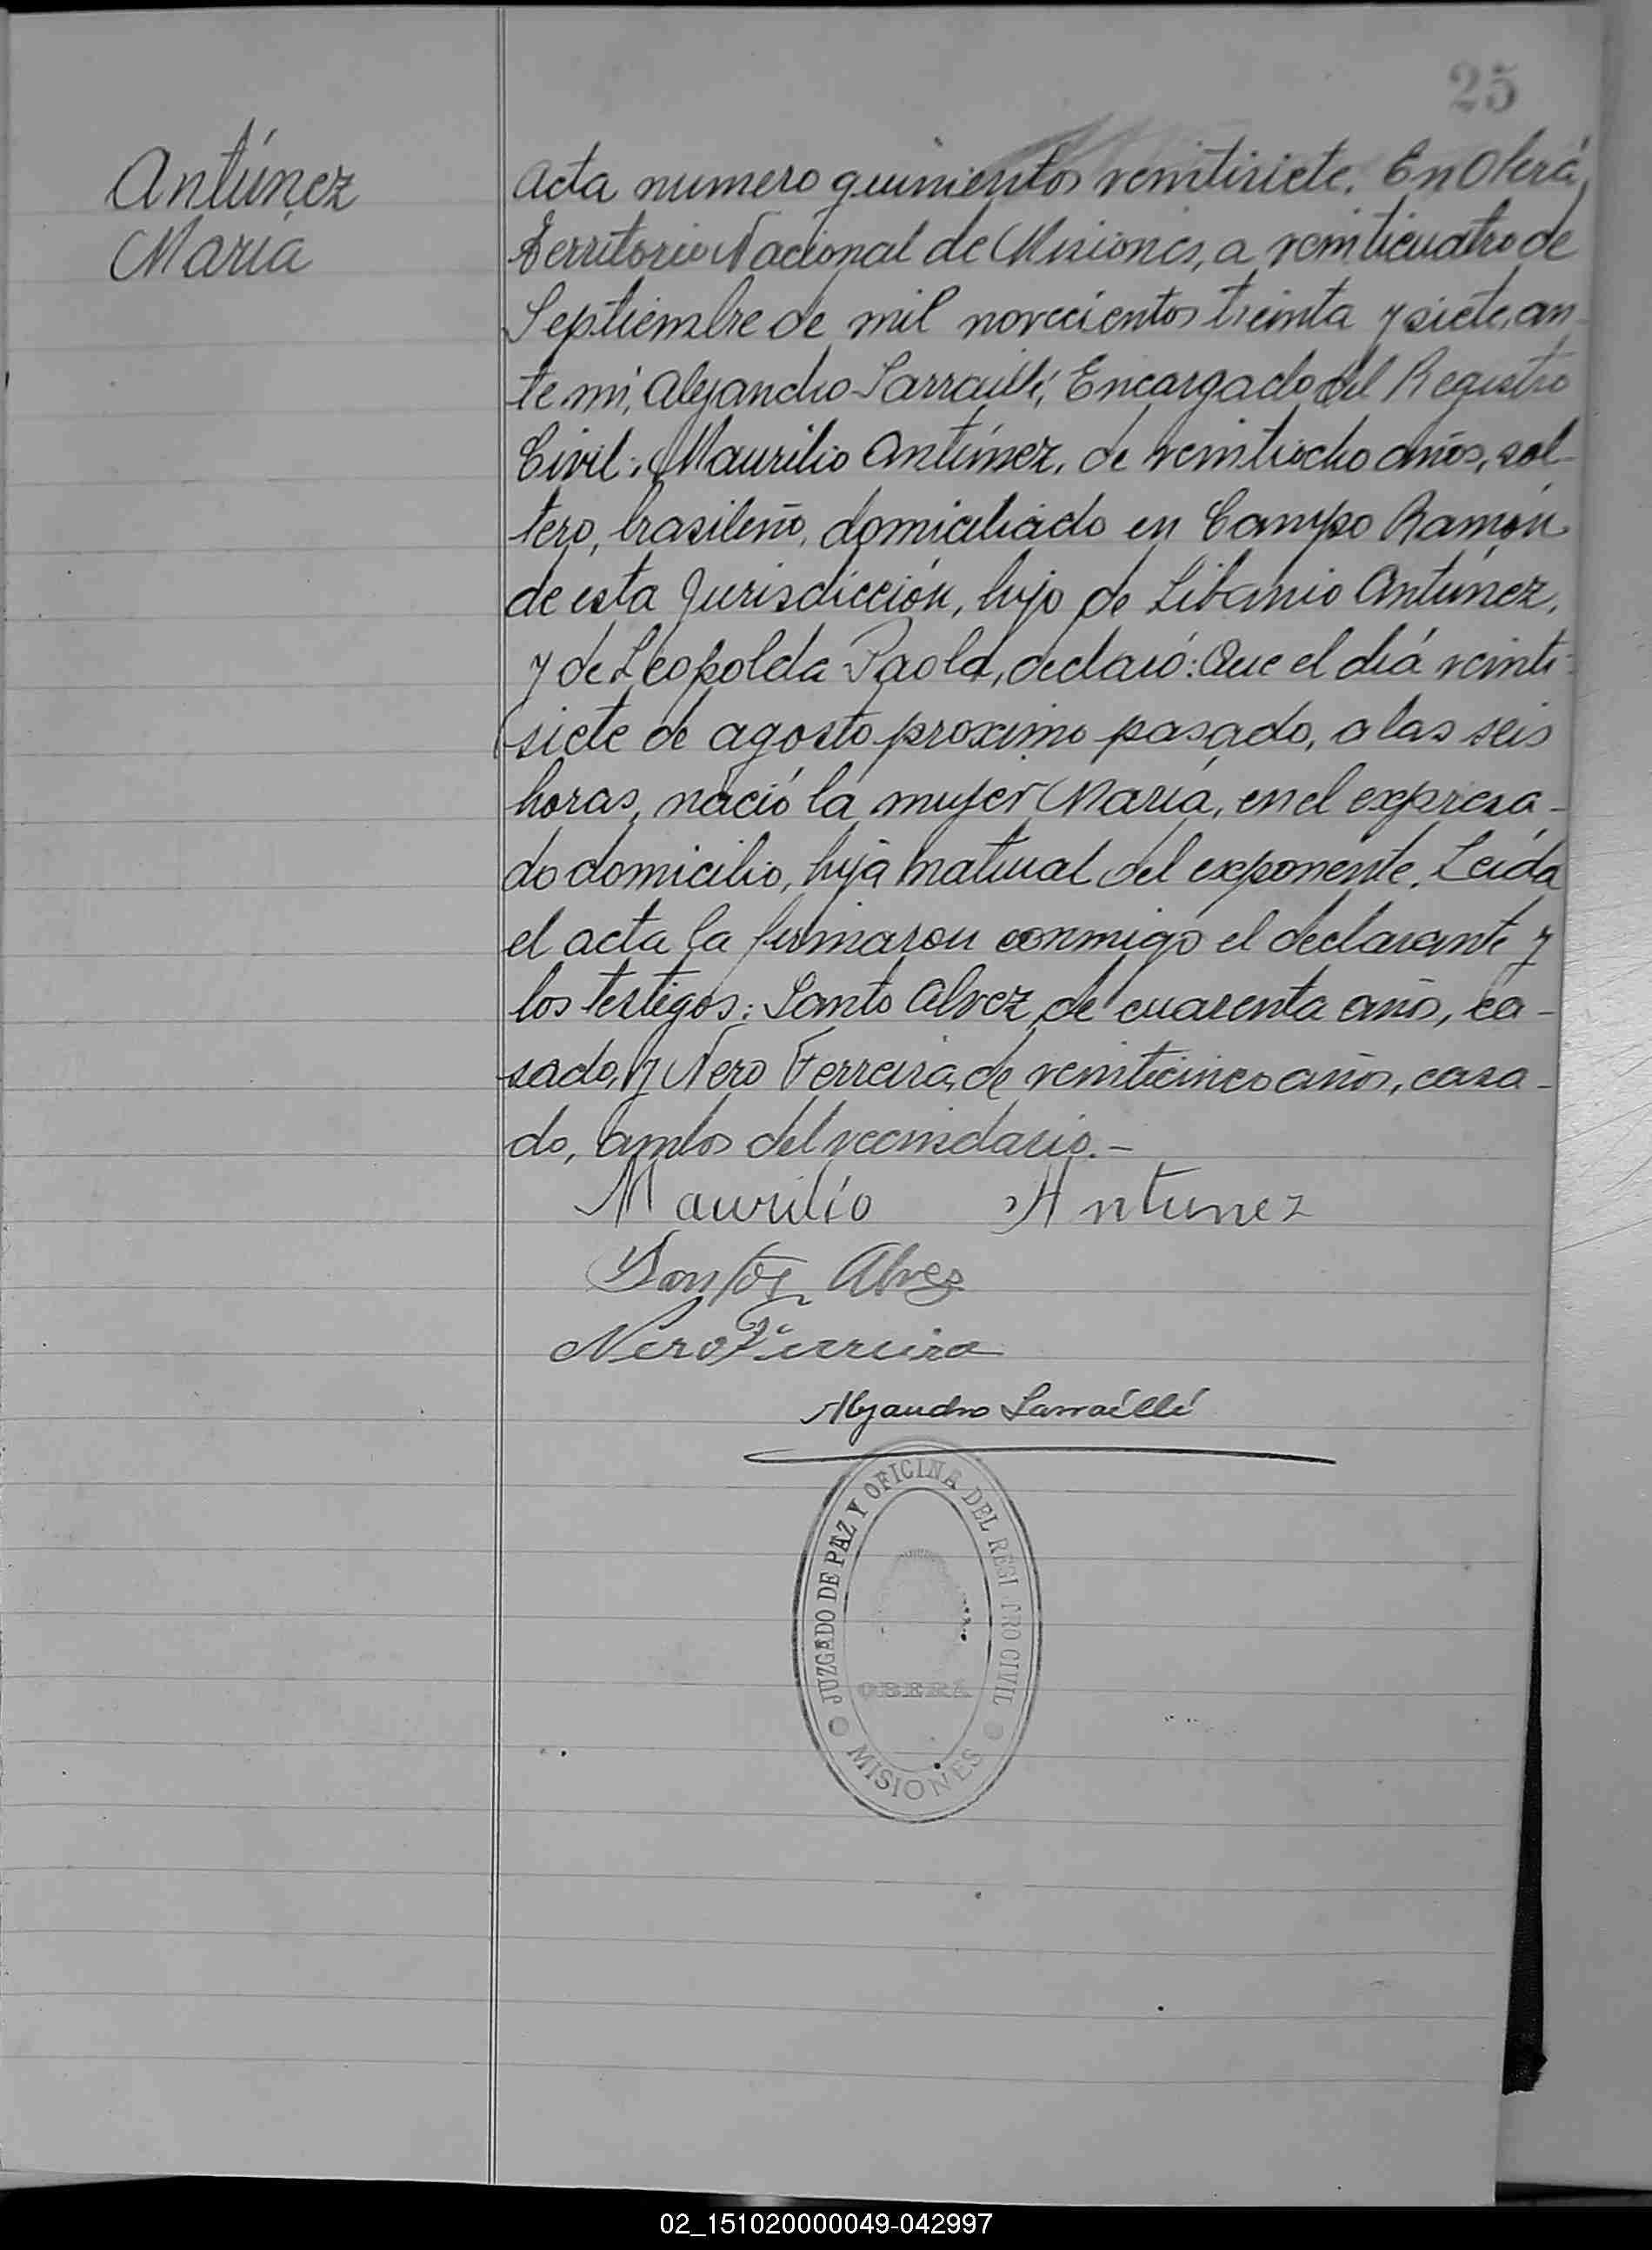 25
Antúnez
María
Acta numero quinientos veintisiete. En Oberá,
Territorio Nacional de Misiones, a veinticuatro de
Septiembre de mil novecientos treinta y siete, an-
te mi, Alejandro Sarraillé, Encargado del Registro
Civil: Maurilio Antúnez, de veintiocho años, sol-
tero, brasileño, domiciliado en Campo Ramón
de esta Jurisdicción, hijo de Libanio Antúnez,
y de Leopolda Paola, declaró: Que el día veinti-
siete de agosto proximo pasado, a las seis
horas, nació la mujer María, en el expresa-
do domicilio, hija natural del exponente. Leida
el acta la firmaron conmigo el declarante y
los testigos: Santo Alvez de cuarenta años, ca-
sado, y Nero Ferreira, de veinticinco años, casa-
do, ambos del vecindario.-
Maurilio Antunez
Santos Alves
Nero Ferreira
Alejandro Sarraillé
JUZGADO DE PAZ Y OFICINA DEL REGI TRO CIVIL
OBERA
MISIONES
02_151020000049-042997